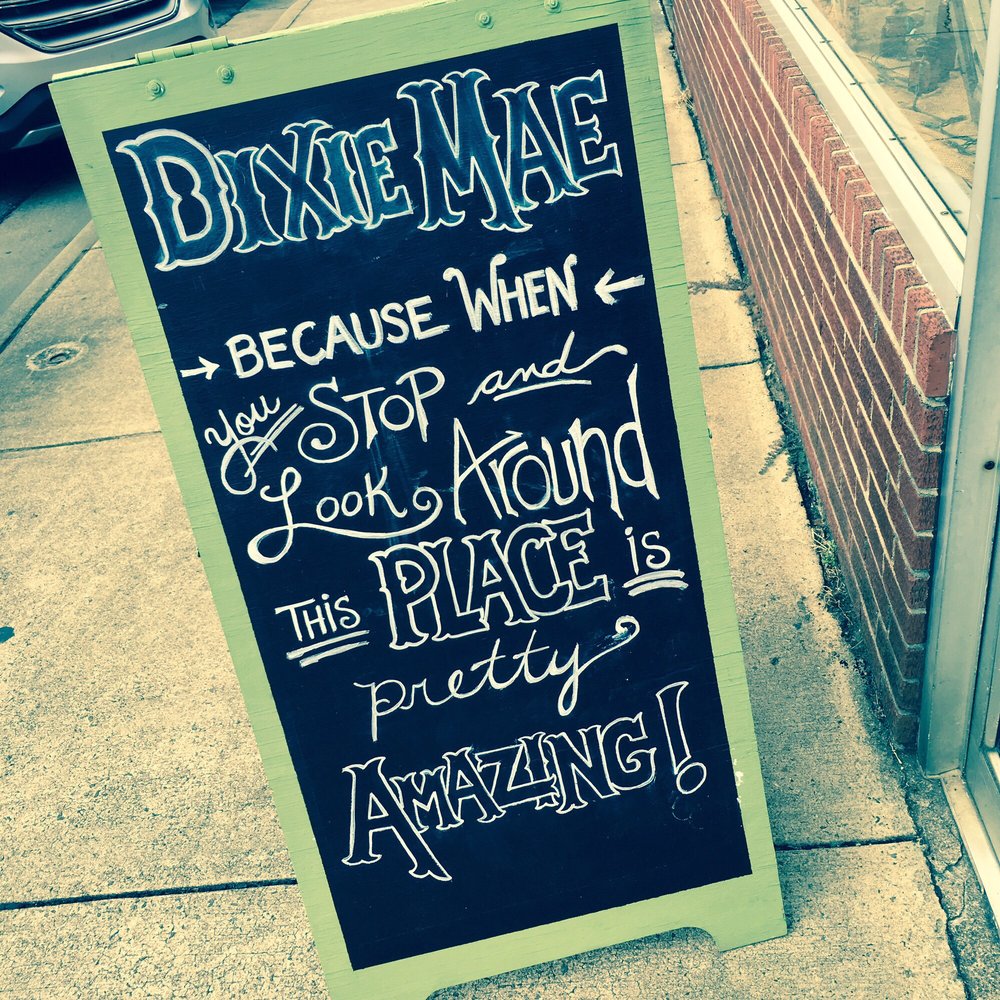 DIXIE MAE
→ BECAUSE WHEN ←
you STOP and
Look Around
THiS PLACE iS
pretty
AMAZING!